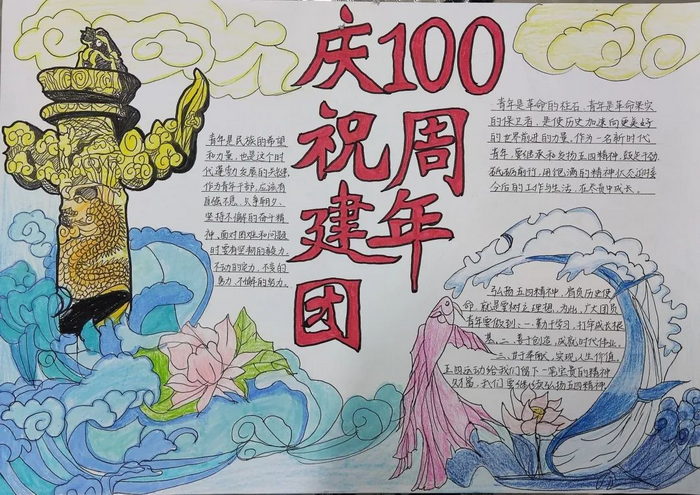 庆祝建团
100周年
青年是民族的希望
和力量,也是这个时
代蓬勃发展的
作为青年干部,应该有
自强不息、只争朝夕、
坚持不懈的奋斗精
神,面对困难和问题
时要有坚韧的毅力、
不动的定力、不畏的
勇力、不懈的努力。
青年是革命的柱石,青年是革命果实
的保卫者,是使历史加速向更美好
的世界前进的力量。作为一名新时代
青年,要继承和发扬五四精神,
砥砺前行,用饱满的精神状态迎接
今后的工作与生活,在奋斗中成长。
弘扬五四精神,肩负历史使
命,就是要树立理想,为此,广大团员
青年要做到:一.勤于学习,打牢成长根
基。二.善于创造,成就时代伟业。
三.甘于奉献,实现人生价值。
五四运动给我们留下一笔宝贵的精神
财富,我们要继续弘扬五四精神